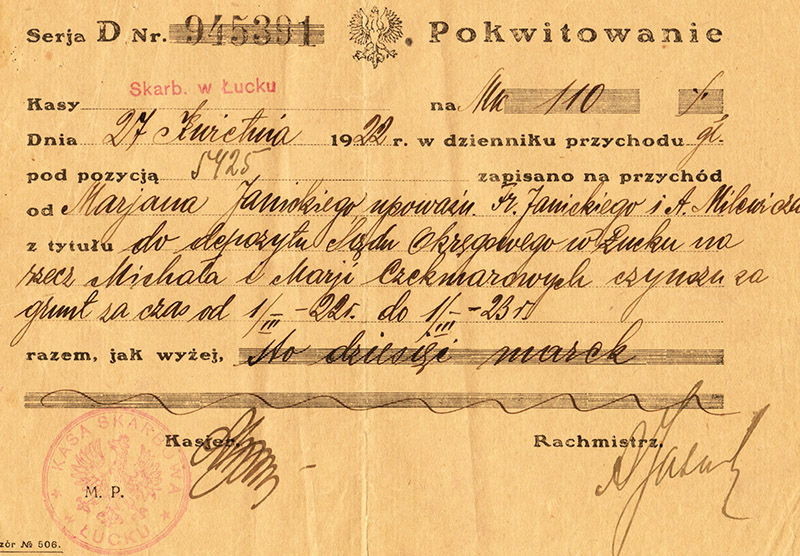 Serja D Nr. 945391 Pokwitowanie
Skarb. w Łucku
Kasy na Mk 110
Dnia 27 Kwietnia 1922 r. w dzienniku przychodu gł.
pod pozycją 5425 zapisano na przychód
od Marjana Janickiego upoważn. Fr. Janickiego i A. Milewicza
z tytułu do depozytu Sądu Okręgowego w Łucku na
rzecz Michała i Marji Czekmarowych czynszu za
grunt za czas od 1/III – 22 r. do 1/III – 23 r.
razem, jak wyżej, Sto dziesięć marek
Kasjer. Rachmistrz.
KASA SKARBOWA
M. P.
ŁUCKU
zór № 506.